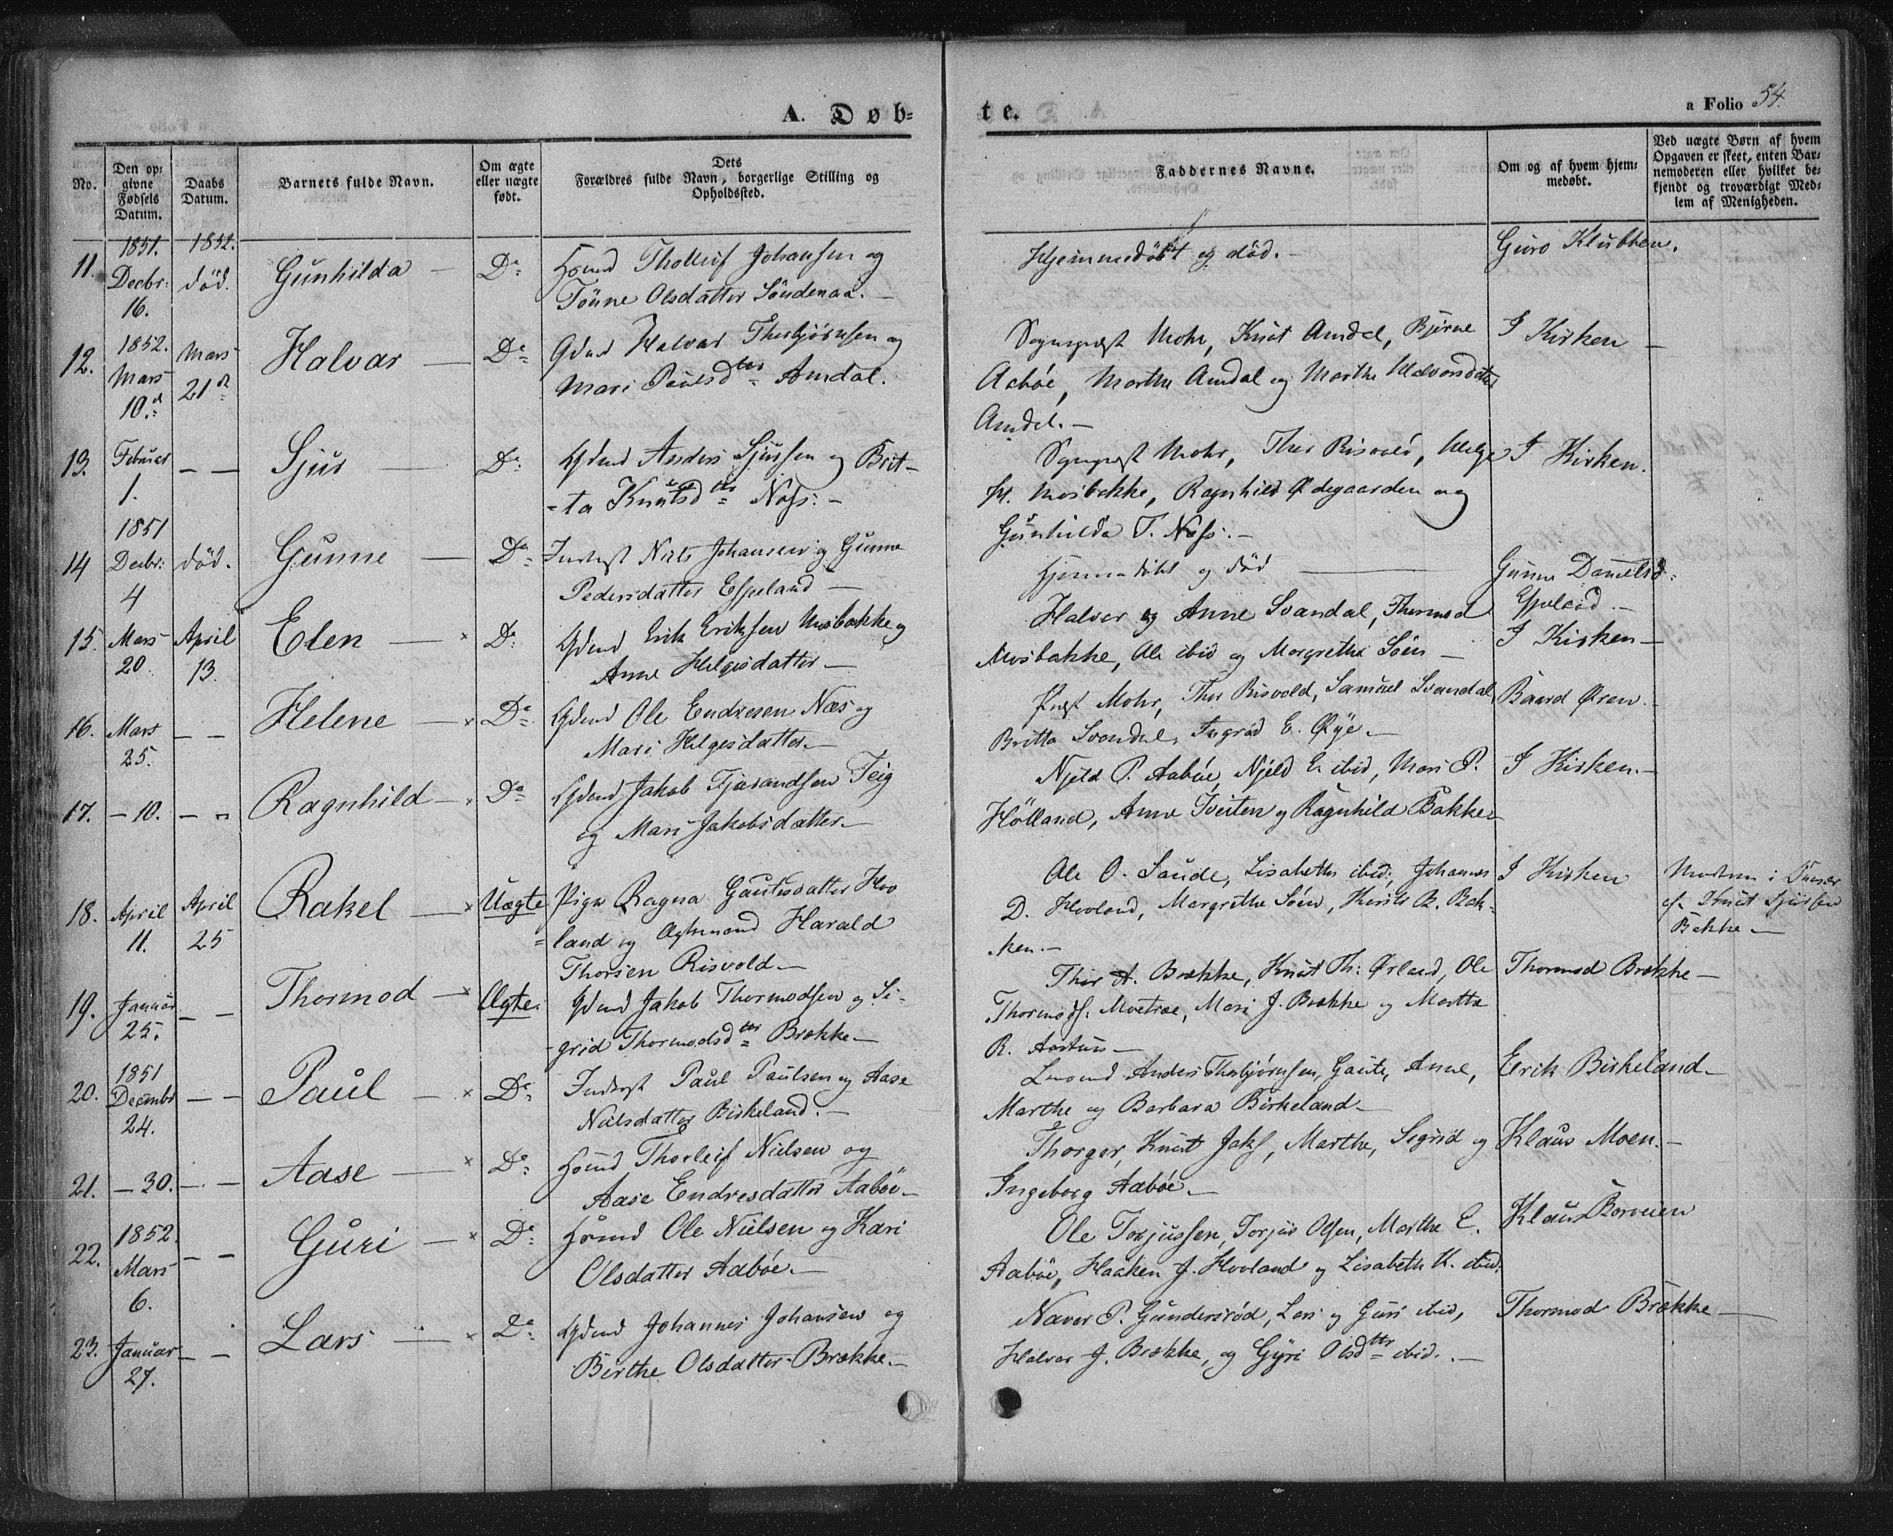 A. Døb-
te.
a Folio 54.
No.
Den op-
givne
Fødsels
Datum.
Daabs
Datum.
Barnets fulde Navn.
Om ægte
eller uægte
født.
Dets
Forældres fulde Navn, borgerlige Stilling og
Opholdssted.
Faddernes Navne.
Om og af hvem hjem-
medøbt.
Ved uægte Børn af hvem
Opgaven er skeet, enten Bar-
nemoderen eller hvilket be-
kjendt og troværdigt Med-
lem af Menigheden.
11. 1851. Decbr. 16.
1852. død.
Gunhilda
Do
Huusmd Tholleif Johansen og
Tönne Olsdatter Söndenaa.
Hjemmedöbt og död.
Guro Klubben.
12. 1852. Mars 10.
Mars 21
Halvar
Do
Gdmd Halvar Thorbjörnsen og
Mari Paulsdtter Amdal.
Sognepræst Mohr, Knut Amdal, Bjørne
Aabøe, Marthe Amdal og Marthe Halvorsdatter
Amdal.
I Kirken
13. Februar 1.
Sjur
Do
Gdmd Anders Sjursen og Brit-
ta Knutsdtter Næss.
Sognepræst Mohr, Thor Risvold, Helge
H. Mosbakke, Ragnhild Ødegaarden og
Gunhilda T. Næss.
I Kirken.
14 1851 Decbr. 4
død.
Gunne
Do
Inderst Niels Johansen og Gunne
Pedersdatter Espeland
Hjemmedöbt og död
Gunne Danielsd.
Espeland.
15. Mars 20.
April 13.
Elen
Do
Gdmd Erik Eriksen Mosbakke og
Anne Helgesdatter
Halvor og Anne Svandal, Thormod
Mosbakke, Ole ibid og Margrethe Söen
I Kirken
16. Mars 25.
Helene
Do
Gdmd Ole Endresen Næs og
Mari Helgesdatter
Præst Mohr, Thor Risvold, Samuel Svandal
Britta Svandal, Ingrid E. Øye.
Baard Øren.
17. 10.
Ragnhild
Do
Gdmd Jakob Tjærandsen Teig
og Mari Jakobsdatter
Njeld P. Aabøe, Njeld E. ibid, Mari P.
Hölland, Anne Tveiten og Ragnhild Bakken
I Kirken.
18. April 11.
April 25
Rakel
Uægte
Pige Ragna Gautesdatter Hov
land og Ægtemand Harald
Thorsen Risvold
Ole O. Saude, Lisabeth ibid, Johannes
D. Hovland, Margrethe Söen, B. Bak-
ken.
I Kirken
Moderen i
Knut Sjursen
Bakke
19. Januar 25.
Thormod
Ægte.
Gdmd Jakob Thormodsen og Si-
grid Thormodsdtter Brække
Thor A. Brække, Knut Th: Ørland, Ole
Thormods. Moetræ, Mari J. Brække og Martha
R. Aartun
Thormod Brække
20. 1851 Decembr 24.
Paul
Do
Inderst Paul Paulsen og Aase
Nielsdatter Birkeland.
Anders Thorbjørnsen, Gaute, Anne,
Marthe og Barbara Birkeland
Erik Birkeland
21. 30.
Aase
Do
Huusmd Thorleif Nielsen og
Aase Endresdatter Aabøe
Thorger, Knut Jaks, Marthe, Sigrid og
Ingeborg Aabøe
Klaus Moen.
22. 1852. Mars 6.
Guri
Do
Huusmd Ole Nielsen og Kari
Olsdatter Aabøe.
Ole Torjussen, Torjus Olsen, Marthe E.
Aabøe, Haaken J. Hovland og Lisabeth K. ibid.
Klaus Borveien
23. Januar 27.
Lars
Do
Gdmd Johannes Johansen og
Birthe Olsdatter Brække
Naver P. Gundersrød, Lars og Guri ibid,
Halvar J. Brække, og Gyri Olsdtter ibid.
Thormod Brække